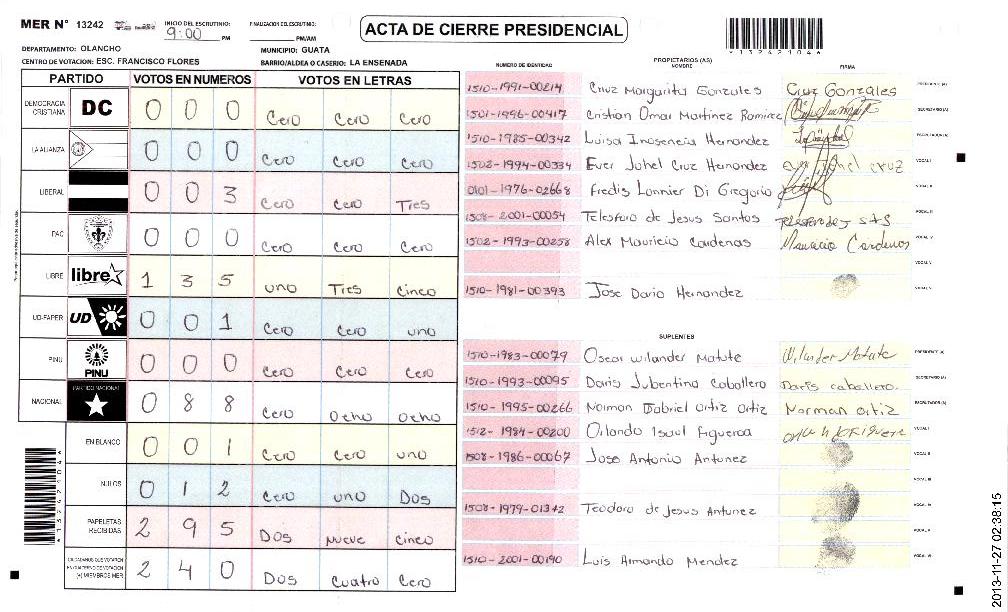 MER N° 13242
INICIO DEL ESCRUTINIO: 9:00 PM
FINALIZACION DEL ESCRUTINIO: PM/AM
ACTA DE CIERRE PRESIDENCIAL
DEPARTAMENTO: OLANCHO
MUNICIPIO: GUATA
CENTRO DE VOTACION: ESC. FRANCISCO FLORES
BARRIO/ALDEA O CASERIO: LA ENSENADA
PARTIDO VOTOS EN NUMEROS VOTOS EN LETRAS
DEMOCRACIA CRISTIANA DC 0 0 0 Cero Cero Cero
LA ALIANZA 0 0 0 Cero Cero Cero
LIBERAL 0 0 3 Cero Cero Tres
PAC 0 0 0 Cero Cero Cero
LIBRE libre 1 3 5 uno Tres Cinco
UD-FAPER UD 0 0 1 Cero Cero uno
PINU PINU 0 0 0 Cero Cero Cero
NACIONAL PARTIDO NACIONAL 0 8 8 Cero Ocho Ocho
EN BLANCO 0 0 1 Cero Cero uno
NULOS 0 1 2 Cero uno Dos
PAPELETAS RECIBIDAS 2 9 5 Dos Nueve Cinco
CIUDADANOS QUE VOTARON EN CUADERNO DE VOTACION (+) MIEMBROS MER 2 4 0 Dos Cuatro Cero
NUMERO DE IDENTIDAD PROPIETARIOS (AS) NOMBRE FIRMA
1510-1991-00214 Cruz Margarita Gonzales Cruz Gonzales PRESIDENTE (A)
1501-1996-00417 Cristian Omar Martinez Ramirez SECRETARIO (A)
1510-1985-00342 Luisa Inosencia Hernandez ESCRUTADOR (A)
1502-1994-00334 Ever Johel Cruz Hernandez VOCAL I
0101-1976-02668 Fredis Lonnier Di Gregorio VOCAL II
1508-2001-00054 Telesforo de Jesus Santos VOCAL III
1502-1993-00258 Alex Mauricio Cardenas Mauricio Cardenas VOCAL IV
VOCAL V
1510-1981-00393 Jose Dario Hernandez
SUPLENTES
1510-1983-00079 Oscar Wilander Matute Wilander Matute PRESIDENTE (A)
1510-1993-00095 Daris Jubentino Caballero Daris caballero. SECRETARIO (A)
1510-1995-00266 Norman Gabriel Ortiz Ortiz Norman ortiz ESCRUTADOR (A)
1512-1984-00200 Orlando Isaul Figueroa VOCAL I
1508-1986-00067 Jose Antonio Antunez VOCAL II
VOCAL III
1508-1979-01342 Teodoro de Jesus Antunez VOCAL IV
VOCAL V
1510-2001-00190 Luis Armando Mendez VOCAL VI
2013-11-27 02:38:15